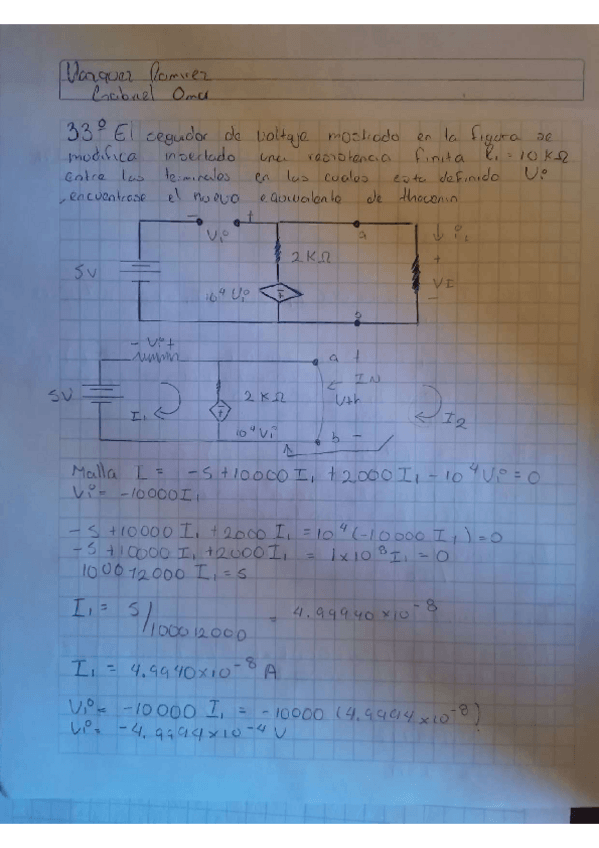 Gabriel Omar
33° El seguidor de voltaje mostrado en la figura se
modifica insertado una resistencia finita R₁ = 10 KΩ
entre las terminales en las cuales esta definido Vi°
, encuentrase el nuevo equivalente de thevenin
- Vi° + a ↓ i₂
5V 2 KΩ +
10⁴ Vi° + VI
-
- Vi° + a +
← IN
5V I₁ 2 KΩ Vth I₂
+ 10⁴ Vi° b -
Malla I = -5 + 10000 I₁ + 2000 I₁ - 10⁴ Vi° = 0
Vi° = -10000 I₁
-5 + 10000 I₁ + 2000 I₁ = 10⁴ (-10000 I₁) = 0
-5 + 10000 I₁ + 2000 I₁ = 1x10⁸ I₁ = 0
100012000 I₁ = 5
I₁ = 5/100012000 = 4.99940 x10⁻⁸
I₁ = 4.9940 x10⁻⁸ A
Vi° = -10000 I₁ = -10000 (4.9994 x10⁻⁸)
Vi° = -4.9994 x10⁻⁴ V